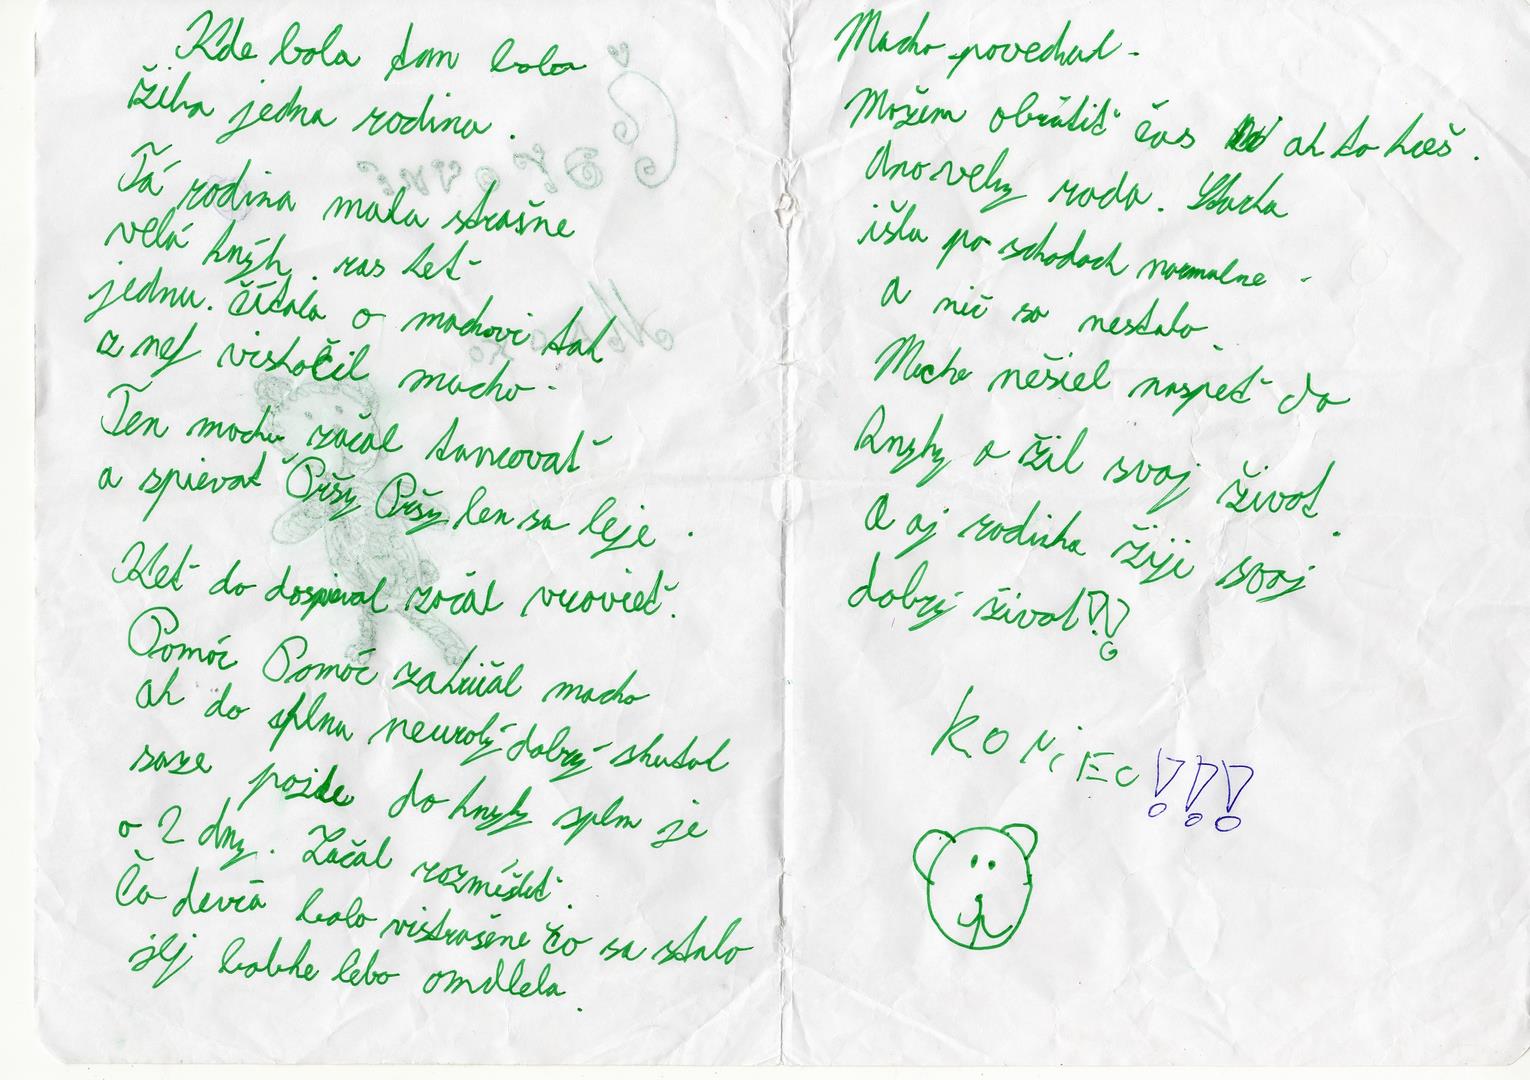 Kde bola tam bola
žila jedna rodina.
Tá rodina mala strašne
velá knýh. ras keť
jednu. Čítala o machovi tak
z nej viskočil macho.
Ten macho začal tancovať
a spievat Pršy Pršy len sa leje.
Keť do dospieval začal vrovieť.
Pomóc Pomóc zakričal macho
ak do splnu neurobý dobrý skutok
saze pojde do knyhy spln je
o 2 dny. Začal rozmíšlať.
Čo devča bolo vistrašene čo sa stalo
jej babke lebo omdlela.
Macho povedal.
Možem obrátiť čas ak to kceš.
Ano velmy rada. Starka
išla po schodoch normalne.
a nič sa nestalo.
Macho nešiel naspeť do
knyhy a žil svoj život.
A aj rodinka žije svoj
dobrý život!!
KONiEC!!!
Čarovné
Macho